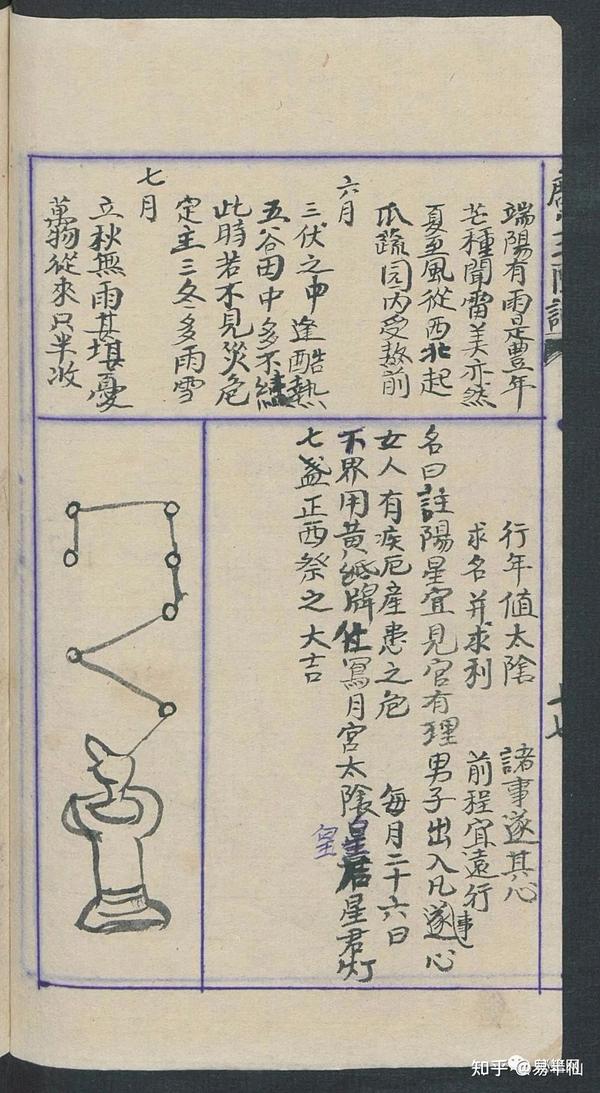 端陽有雨是豊年
芒種聞雷美亦然
夏至風從西北起
瓜蔬园内受熬前
六月
三伏之中逢酷熱
五谷田中多不結
此時若不見災危
定主三冬多雨雪
七月
立秋無雨甚堪憂
萬物從來只半收
行年值太陰 諸事遂其心
求名并求利 前程宜遠行
名曰註陽星宜見官有理男子出入凡事遂心
女人有疾厄産患之危 每月二十六日
下界用黄紙牌位寫月宮太陰皇君星君灯
皇
七盏正西祭之大吉
知乎 @易华仙